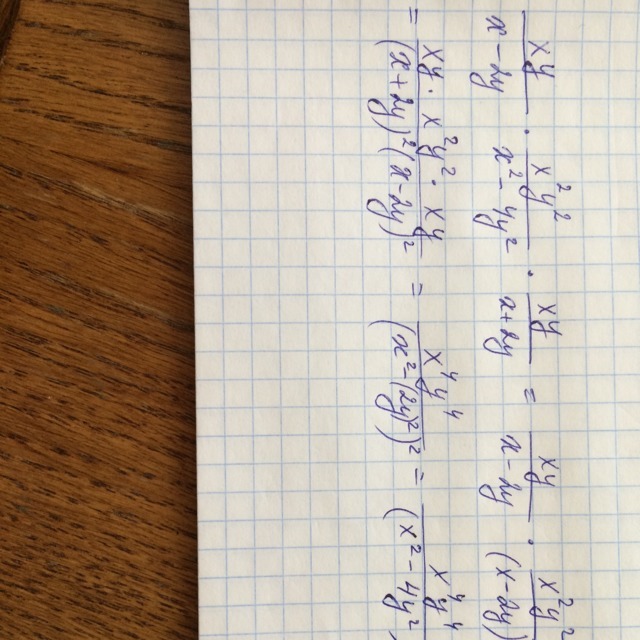 xy/(x-2y) · x²y²/(x²-4y²) · xy/(x+2y) = xy/(x-2y) · x²y²/(x-2y)
= xy · x²y² · xy/((x+2y)²(x-2y)²) = x⁴y⁴/(x²-(2y)²)² = x⁴y⁴/(x²-4y²